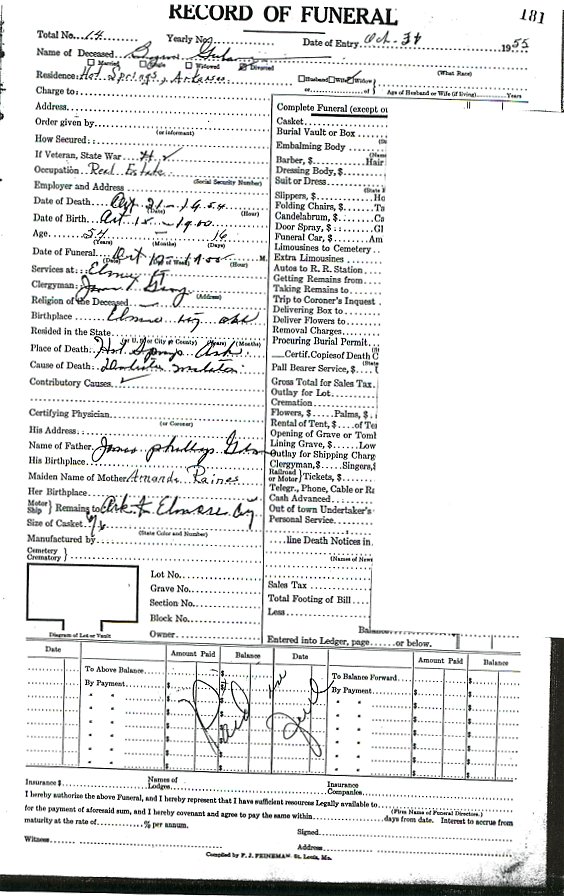 RECORD OF FUNERAL
181
Total No. 14 Yearly No. Date of Entry Oct. 1955
Name of Deceased Byron
Married Single Widowed Divorced (What Race)
Residence: Hot Springs, Arkansas Husband Wife Widow
or of Age of Husband or Wife (if living) Years
Charge to:
Address
Order given by
(or informant)
How Secured:
If Veteran, State War
Occupation Real Estate
(Social Security Number)
Employer and Address
Date of Death 21-1954
(Date) (Hour)
Date of Birth 15-1900
Age 54 — 16
(Years) (Months) (Days)
Date of Funeral M.
(Hour)
Services at: Elmore
Clergyman: James
(Address)
Religion of the Deceased —
Birthplace Elmore
Resided in the State
(or U. S. or City or County) (Years) (Months)
Place of Death: Hot Springs Ark.
Cause of Death:
Contributory Causes
Certifying Physician
(or Coroner)
His Address
Name of Father James Phillips
His Birthplace
Maiden Name of Mother Amanda Raines
Her Birthplace
Motor Ship } Remains to Elmore City
Size of Casket 6/6
(State Color and Number)
Manufactured by
Cemetery Crematory }
Diagram of Lot or Vault
Lot No.
Grave No.
Section No.
Block No.
Owner
Complete Funeral (except ou
Casket
Burial Vault or Box
Embalming Body
(Name
Barber, $ Hair
Dressing Body, $
Suit or Dress
(State
Slippers, $ Ho
Folding Chairs, $ Ta
Candelabrum, $ Ca
Door Spray, $ Gl
Funeral Car, $ Am
Limousines to Cemetery
Extra Limousines
Autos to R. R. Station
Getting Remains from
Taking Remains to
Trip to Coroner's Inquest
Delivering Box to
Deliver Flowers to
Removal Charges
Procuring Burial Permit
Certif. Copies of Death C
(State
Pall Bearer Service, $
Gross Total for Sales Tax
Outlay for Lot
Cremation
Flowers, $ Palms, $
Rental of Tent, $ of Te
Opening of Grave or Tomb
Lining Grave, $ Low
Outlay for Shipping Charg
Clergyman, $ Singers,
Railroad or Motor } Tickets, $
Telegr., Phone, Cable or Ra
Cash Advanced
Out of town Undertaker's
Personal Service
line Death Notices in
(Names of News
Sales Tax
Total Footing of Bill
Less
Balance
Entered into Ledger, page or below.
Date Amount Paid Balance Date Amount Paid Balance
To Above Balance $ To Balance Forward $
By Payment $ By Payment $
" " $ " " $
" " $ " " $
" " $ " " $
" " $ " " $
" " $ " " $
" " $ " " $
Paid
Insurance $ Names of Lodges Insurance Companies
I hereby authorize the above Funeral, and I hereby represent that I have sufficient resources Legally available to
(Firm Name of Funeral Directors.)
for the payment of aforesaid sum, and I hereby covenant and agree to pay the same within days from date. Interest to accrue from
maturity at the rate of % per annum.
Signed
Witness
Address
Compiled by F. J. FEINEMAN, St. Louis, Mo.